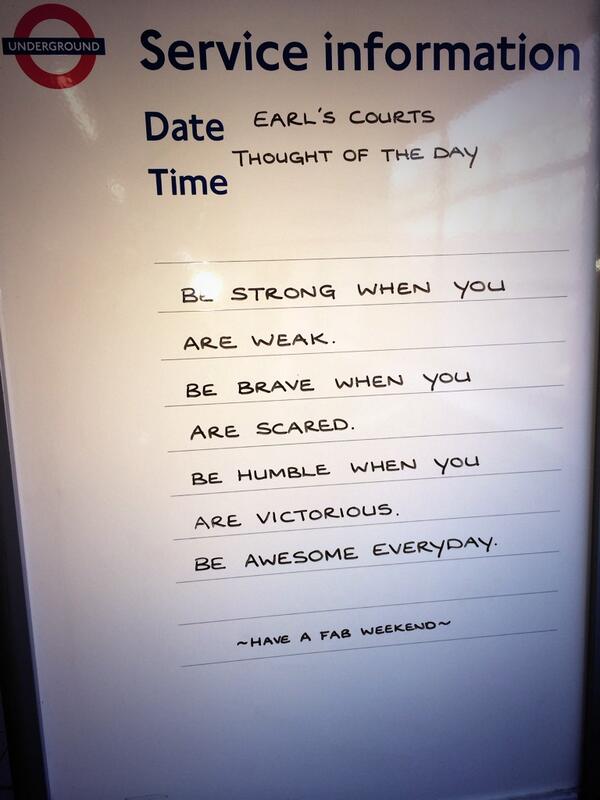 UNDERGROUND
Service information
Date EARL'S COURTS
THOUGHT OF THE DAY
Time
BE STRONG WHEN YOU
ARE WEAK.
BE BRAVE WHEN YOU
ARE SCARED.
BE HUMBLE WHEN YOU
ARE VICTORIOUS.
BE AWESOME EVERYDAY.
~HAVE A FAB WEEKEND~